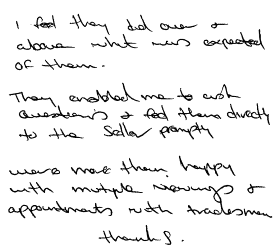 I feel they did over &
above what was expected
of them.
They enabled me to ask
questions & feed them directly
to the Seller promptly
were more then happy
with multiple viewings &
appointments with tradesmen
thanks.